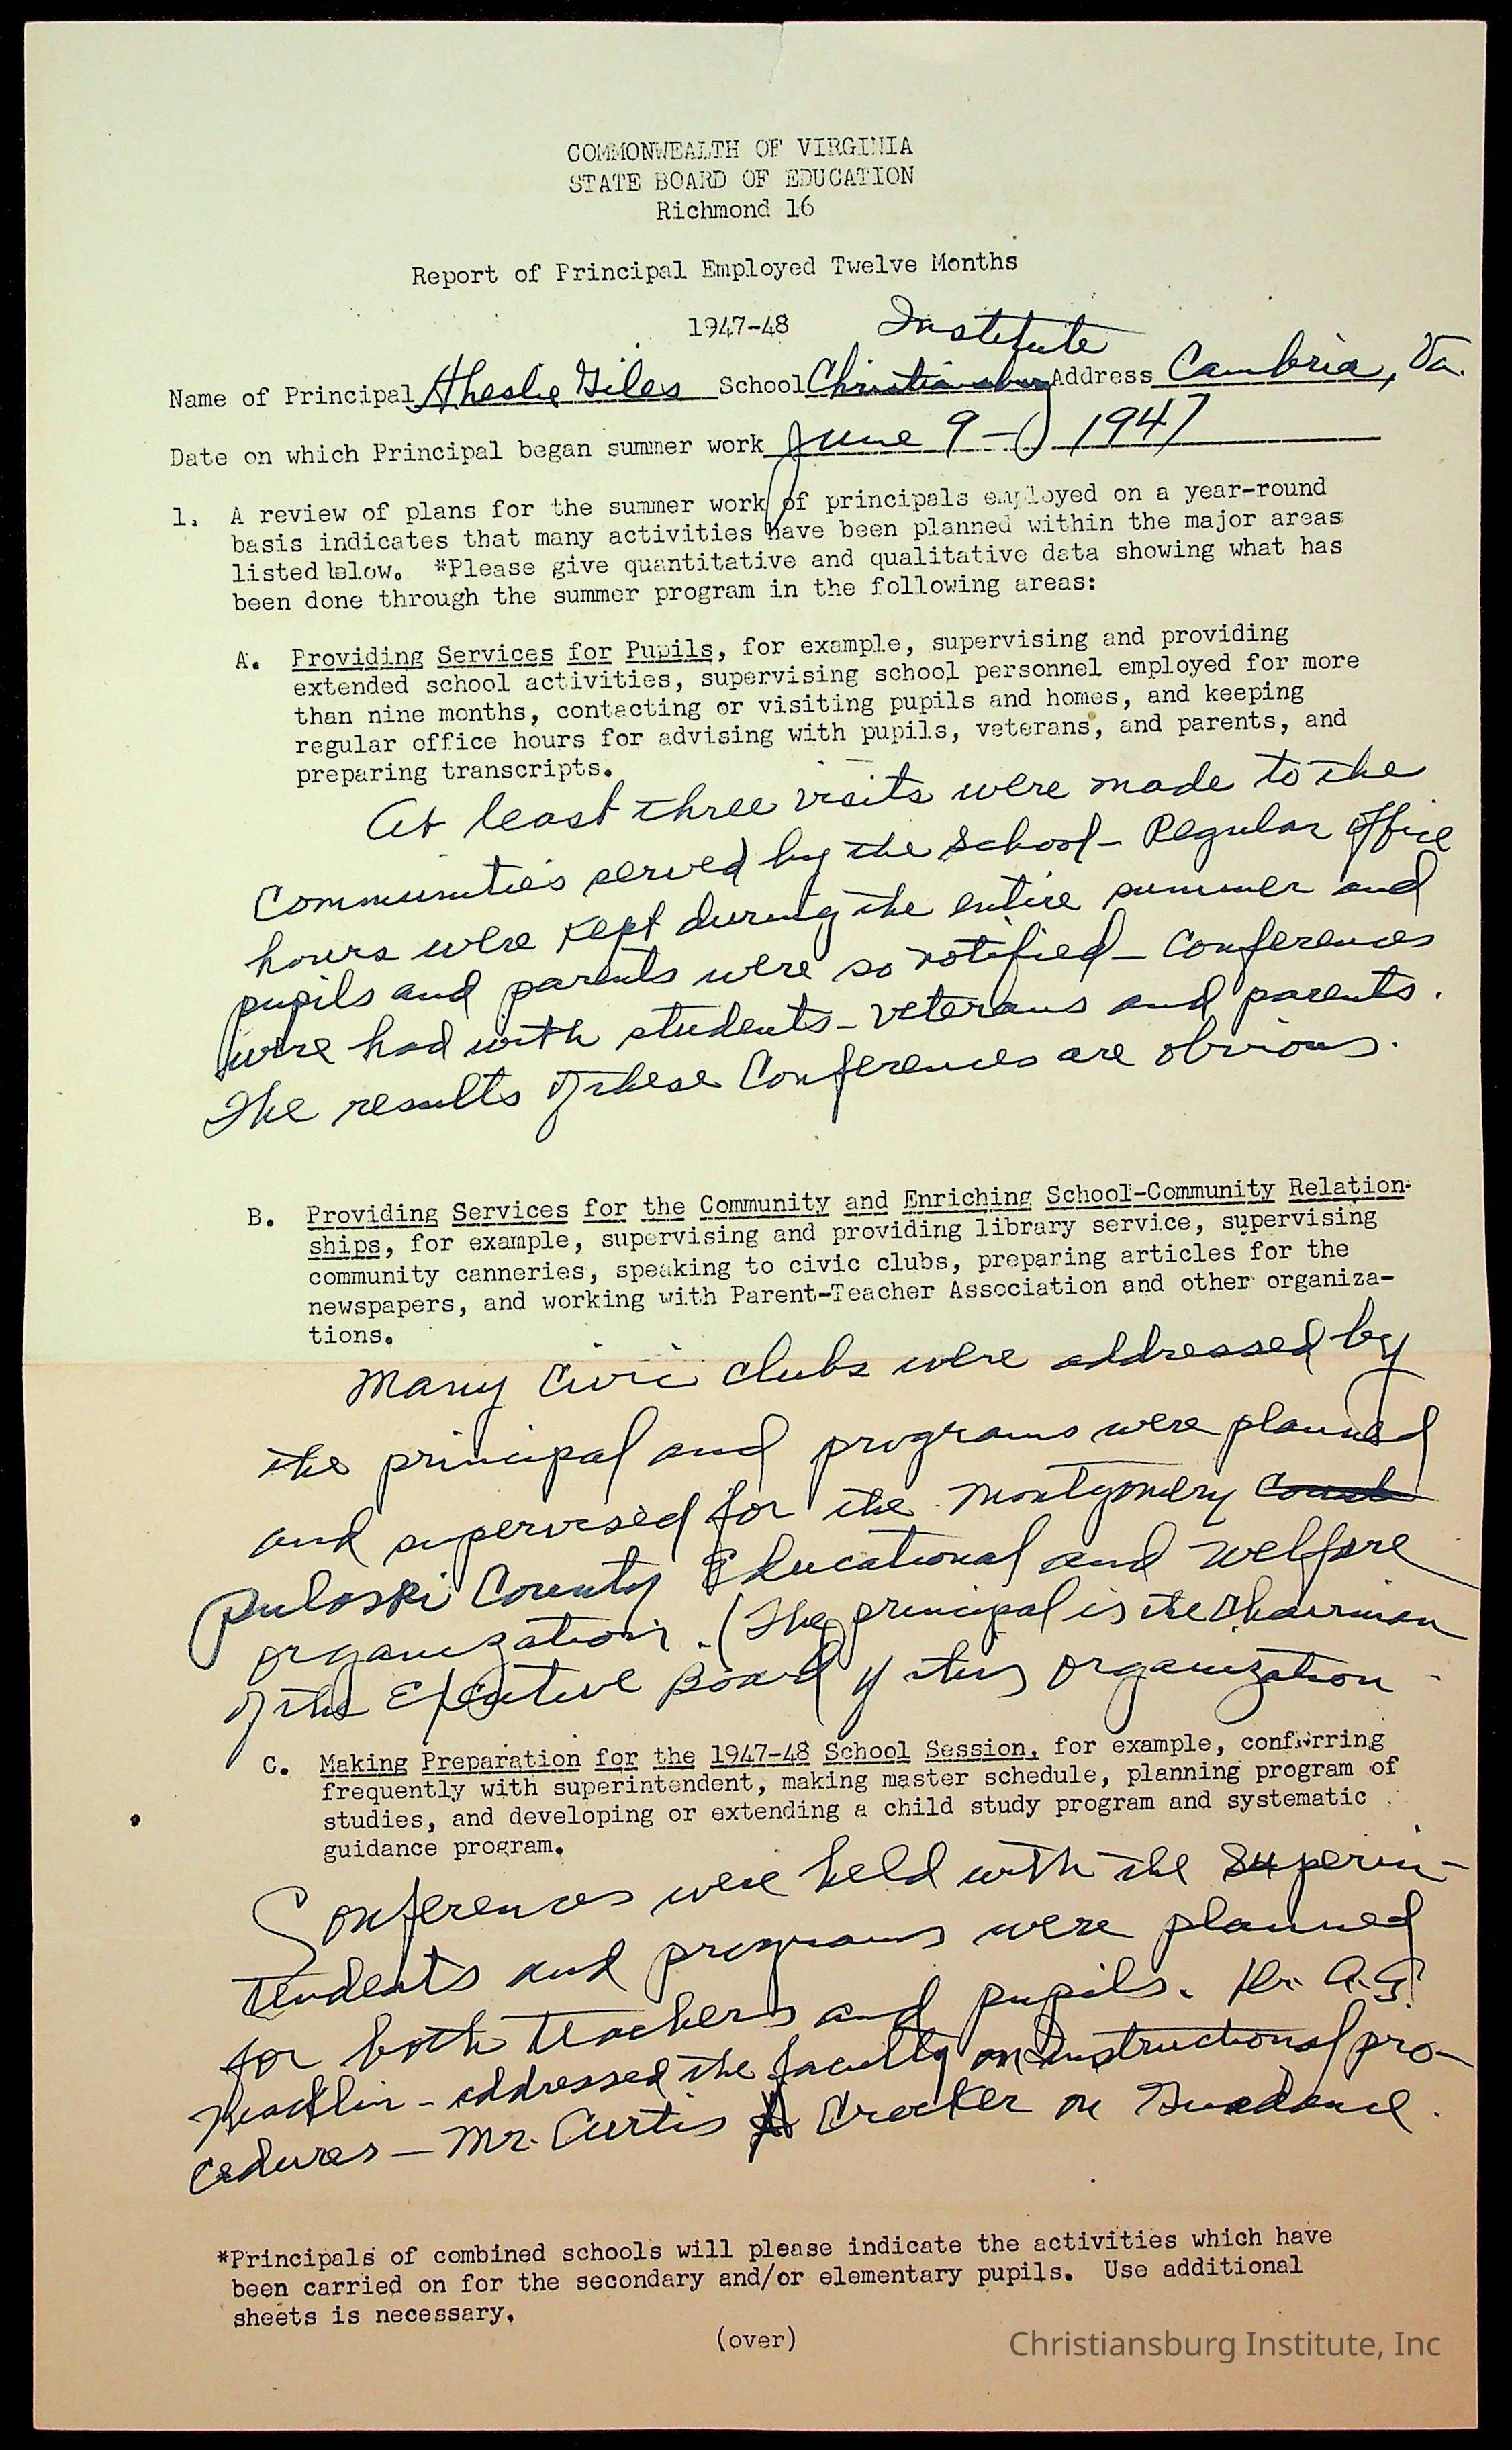 COMMONWEALTH OF VIRGINIA
STATE BOARD OF EDUCATION
Richmond 16
Report of Principal Employed Twelve Months
1947-48
Institute
Name of Principal A Leslie Giles School Christiansburg Address Cambria, Va.
Date on which Principal began summer work June 9 - 1947
1. A review of plans for the summer work of principals employed on a year-round
basis indicates that many activities have been planned within the major areas
listed below. *Please give quantitative and qualitative data showing what has
been done through the summer program in the following areas:
A. Providing Services for Pupils, for example, supervising and providing
extended school activities, supervising school personnel employed for more
than nine months, contacting or visiting pupils and homes, and keeping
regular office hours for advising with pupils, veterans, and parents, and
preparing transcripts.
At least three visits were made to the
Communities served by the School - Regular office
hours were kept during the entire summer and
pupils and parents were so notified - Conferences
were had with students - veterans and parents.
The results of these Conferences are obvious.
B. Providing Services for the Community and Enriching School-Community Relation-
ships, for example, supervising and providing library service, supervising
community canneries, speaking to civic clubs, preparing articles for the
newspapers, and working with Parent-Teacher Association and other organiza-
tions.
Many Civic Clubs were addressed by
the principal and programs were planned
and supervised for the Montgomery
Pulaski County Educational and Welfare
organization. (The principal is the Chairman
of the Executive Board of this organization
C. Making Preparation for the 1947-48 School Session, for example, conferring
frequently with superintendent, making master schedule, planning program of
studies, and developing or extending a child study program and systematic
guidance program.
Conferences were held with the Superin-
tendents and programs were planned
for both teachers and pupils. Dr. A.G.
Macklin - addressed the faculty on Instructional pro-
cedures - Mr. Curtis Crocker on Guidance.
*Principals of combined schools will please indicate the activities which have
been carried on for the secondary and/or elementary pupils. Use additional
sheets is necessary.
(over)
Christiansburg Institute, Inc